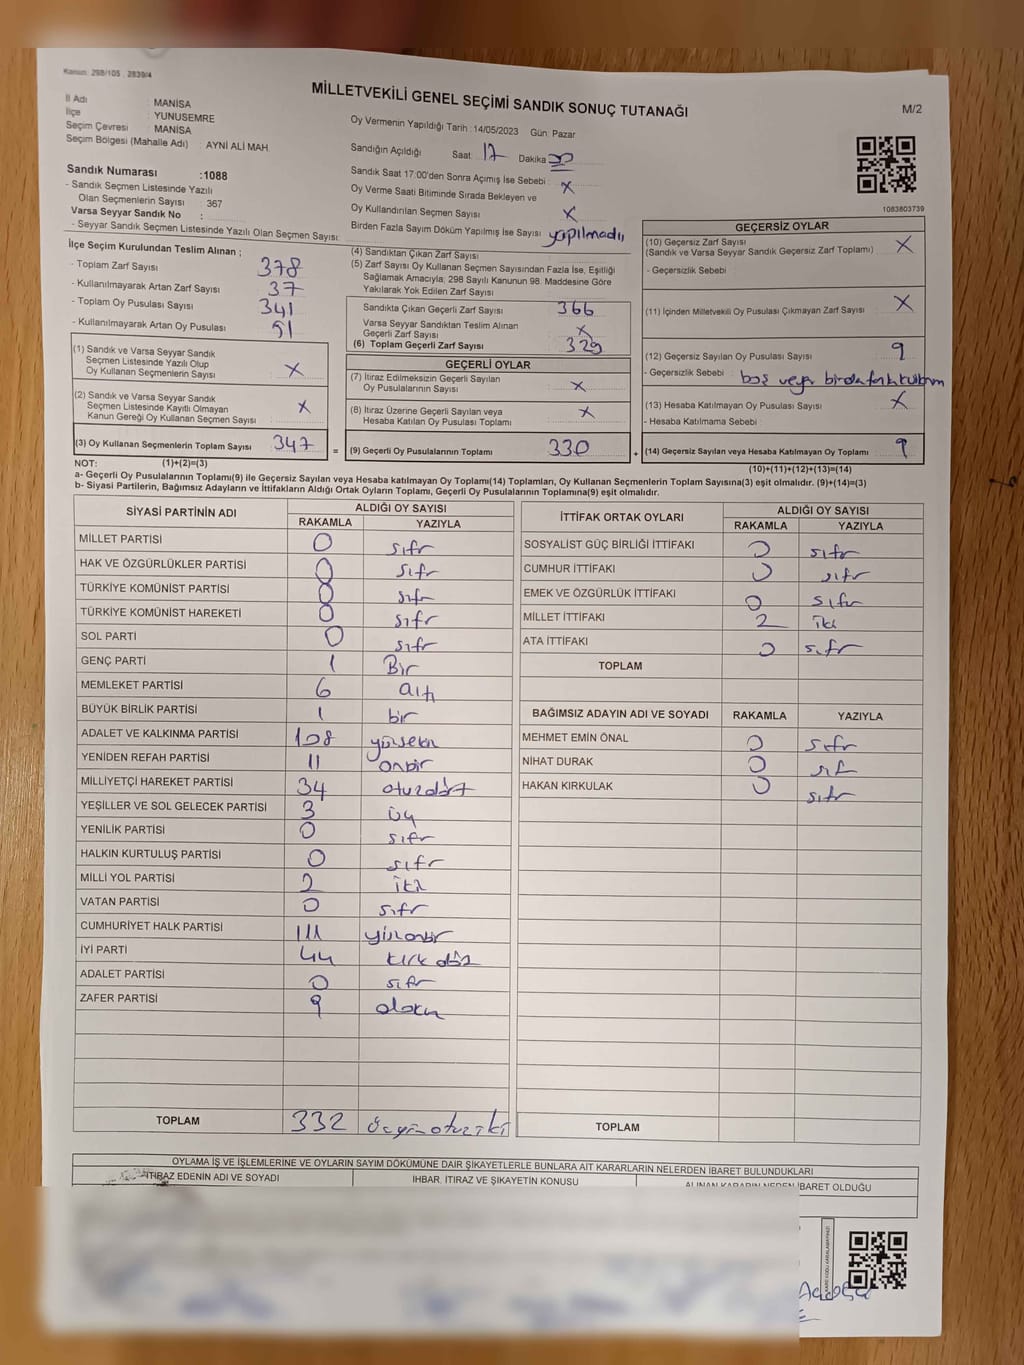 Kanun: 298/105 , 2839/4
MİLLETVEKİLİ GENEL SEÇİMİ SANDIK SONUÇ TUTANAĞI
M/2
İl Adı : MANİSA
İlçe : YUNUSEMRE
Seçim Çevresi : MANİSA
Seçim Bölgesi (Mahalle Adı) : AYNİ ALİ MAH.
Sandık Numarası :1088
- Sandık Seçmen Listesinde Yazılı
Olan Seçmenlerin Sayısı : 367
Varsa Seyyar Sandık No :
- Seyyar Sandık Seçmen Listesinde Yazılı Olan Seçmen Sayısı:
Oy Vermenin Yapıldığı Tarih :14/05/2023 Gün: Pazar
Sandığın Açıldığı Saat: 17 Dakika:
Sandık Saat 17:00'den Sonra Açımış İse Sebebi : X
Oy Verme Saati Bitiminde Sırada Bekleyen ve
Oy Kullandırılan Seçmen Sayısı : X
Birden Fazla Sayım Döküm Yapılmış İse Sayısı : yapılmadı
1083803739
İlçe Seçim Kurulundan Teslim Alınan ;
- Toplam Zarf Sayısı : 378
- Kullanılmayarak Artan Zarf Sayısı : 37
- Toplam Oy Pusulası Sayısı : 341
- Kullanılmayarak Artan Oy Pusulası : 51
(1) Sandık ve Varsa Seyyar Sandık
Seçmen Listesinde Yazılı Olup
Oy Kullanan Seçmenlerin Sayısı : X
(2) Sandık ve Varsa Seyyar Sandık
Seçmen Listesinde Kayıtlı Olmayan
Kanun Gereği Oy Kullanan Seçmen Sayısı : X
(3) Oy Kullanan Seçmenlerin Toplam Sayısı : 347 =
(1)+(2)=(3)
(4) Sandıktan Çıkan Zarf Sayısı :
(5) Zarf Sayısı Oy Kullanan Seçmen Sayısından Fazla İse, Eşitliği
Sağlamak Amacıyla; 298 Sayılı Kanunun 98. Maddesine Göre
Yakılarak Yok Edilen Zarf Sayısı :
Sandıkta Çıkan Geçerli Zarf Sayısı : 366
Varsa Seyyar Sandıktan Teslim Alınan
Geçerli Zarf Sayısı : X
(6) Toplam Geçerli Zarf Sayısı : 329
GEÇERLİ OYLAR
(7) İtiraz Edilmeksizin Geçerli Sayılan
Oy Pusulalarının Sayısı : X
(8) İtiraz Üzerine Geçerli Sayılan veya
Hesaba Katılan Oy Pusulası Toplamı : X
(9) Geçerli Oy Pusulalarının Toplamı : 330 +
GEÇERSİZ OYLAR
(10) Geçersiz Zarf Sayısı : X
(Sandık ve Varsa Seyyar Sandık Geçersiz Zarf Toplamı)
- Geçersizlik Sebebi :
(11) İçinden Milletvekili Oy Pusulası Çıkmayan Zarf Sayısı : X
(12) Geçersiz Sayılan Oy Pusulası Sayısı : 9
- Geçersizlik Sebebi : boş veya birden fazla
(13) Hesaba Katılmayan Oy Pusulası Sayısı : X
- Hesaba Katılmama Sebebi :
(14) Geçersiz Sayılan veya Hesaba Katılmayan Oy Toplamı : 9
(10)+(11)+(12)+(13)=(14)
NOT:
a- Geçerli Oy Pusulalarının Toplamı(9) ile Geçersiz Sayılan veya Hesaba katılmayan Oy Toplamı(14) Toplamları, Oy Kullanan Seçmenlerin Toplam Sayısına(3) eşit olmalıdır. (9)+(14)=(3)
b- Siyasi Partilerin, Bağımsız Adayların ve İttifakların Aldığı Ortak Oyların Toplamı, Geçerli Oy Pusulalarının Toplamına(9) eşit olmalıdır.
SİYASİ PARTİNİN ADI ALDIĞI OY SAYISI
RAKAMLA YAZIYLA
MİLLET PARTİSİ 0 sıfır
HAK VE ÖZGÜRLÜKLER PARTİSİ 0 sıfır
TÜRKİYE KOMÜNİST PARTİSİ 0 sıfır
TÜRKİYE KOMÜNİST HAREKETİ 0 sıfır
SOL PARTİ 0 sıfır
GENÇ PARTİ 1 Bir
MEMLEKET PARTİSİ 6 altı
BÜYÜK BİRLİK PARTİSİ 1 bir
ADALET VE KALKINMA PARTİSİ 108 yüzsekiz
YENİDEN REFAH PARTİSİ 11 onbir
MİLLİYETÇİ HAREKET PARTİSİ 34 otuzdört
YEŞİLLER VE SOL GELECEK PARTİSİ 3 üç
YENİLİK PARTİSİ 0 sıfır
HALKIN KURTULUŞ PARTİSİ 0 sıfır
MİLLİ YOL PARTİSİ 2 iki
VATAN PARTİSİ 0 sıfır
CUMHURİYET HALK PARTİSİ 111 yüzonbir
İYİ PARTİ 44 kırk dört
ADALET PARTİSİ 0 sıfır
ZAFER PARTİSİ 9 dokuz
TOPLAM 332 üçyüzotuziki
İTTİFAK ORTAK OYLARI ALDIĞI OY SAYISI
RAKAMLA YAZIYLA
SOSYALİST GÜÇ BİRLİĞİ İTTİFAKI 0 sıfır
CUMHUR İTTİFAKI 0 sıfır
EMEK VE ÖZGÜRLÜK İTTİFAKI 0 sıfır
MİLLET İTTİFAKI 2 iki
ATA İTTİFAKI 0 sıfır
TOPLAM
BAĞIMSIZ ADAYIN ADI VE SOYADI RAKAMLA YAZIYLA
MEHMET EMİN ÖNAL 0 sıfır
NİHAT DURAK 0 sıfır
HAKAN KIRKULAK 0 sıfır
TOPLAM
OYLAMA İŞ VE İŞLEMLERİNE VE OYLARIN SAYIM DÖKÜMÜNE DAİR ŞİKAYETLERLE BUNLARA AİT KARARLARIN NELERDEN İBARET BULUNDUKLARI
İTİRAZ EDENİN ADI VE SOYADI İHBAR, İTİRAZ VE ŞİKAYETİN KONUSU ALINAN KARARIN NEDEN İBARET OLDUĞU